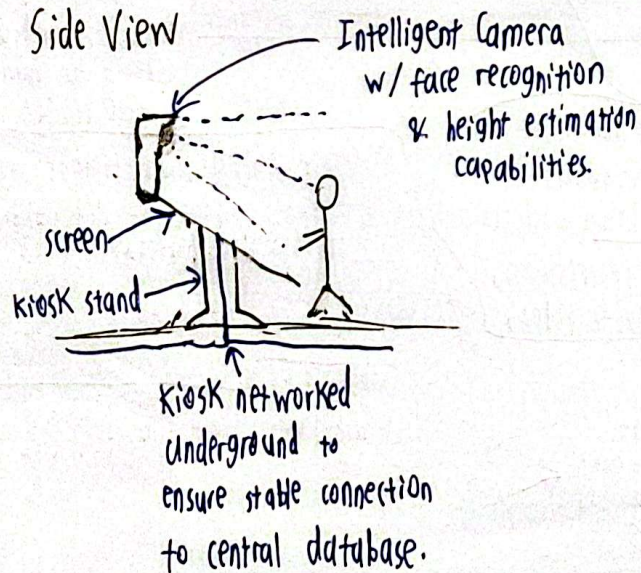 Side View
Intelligent Camera
w/ face recognition
& height estimation
capabilities.
screen
kiosk stand
Kiosk networked
underground to
ensure stable connection
to central database.